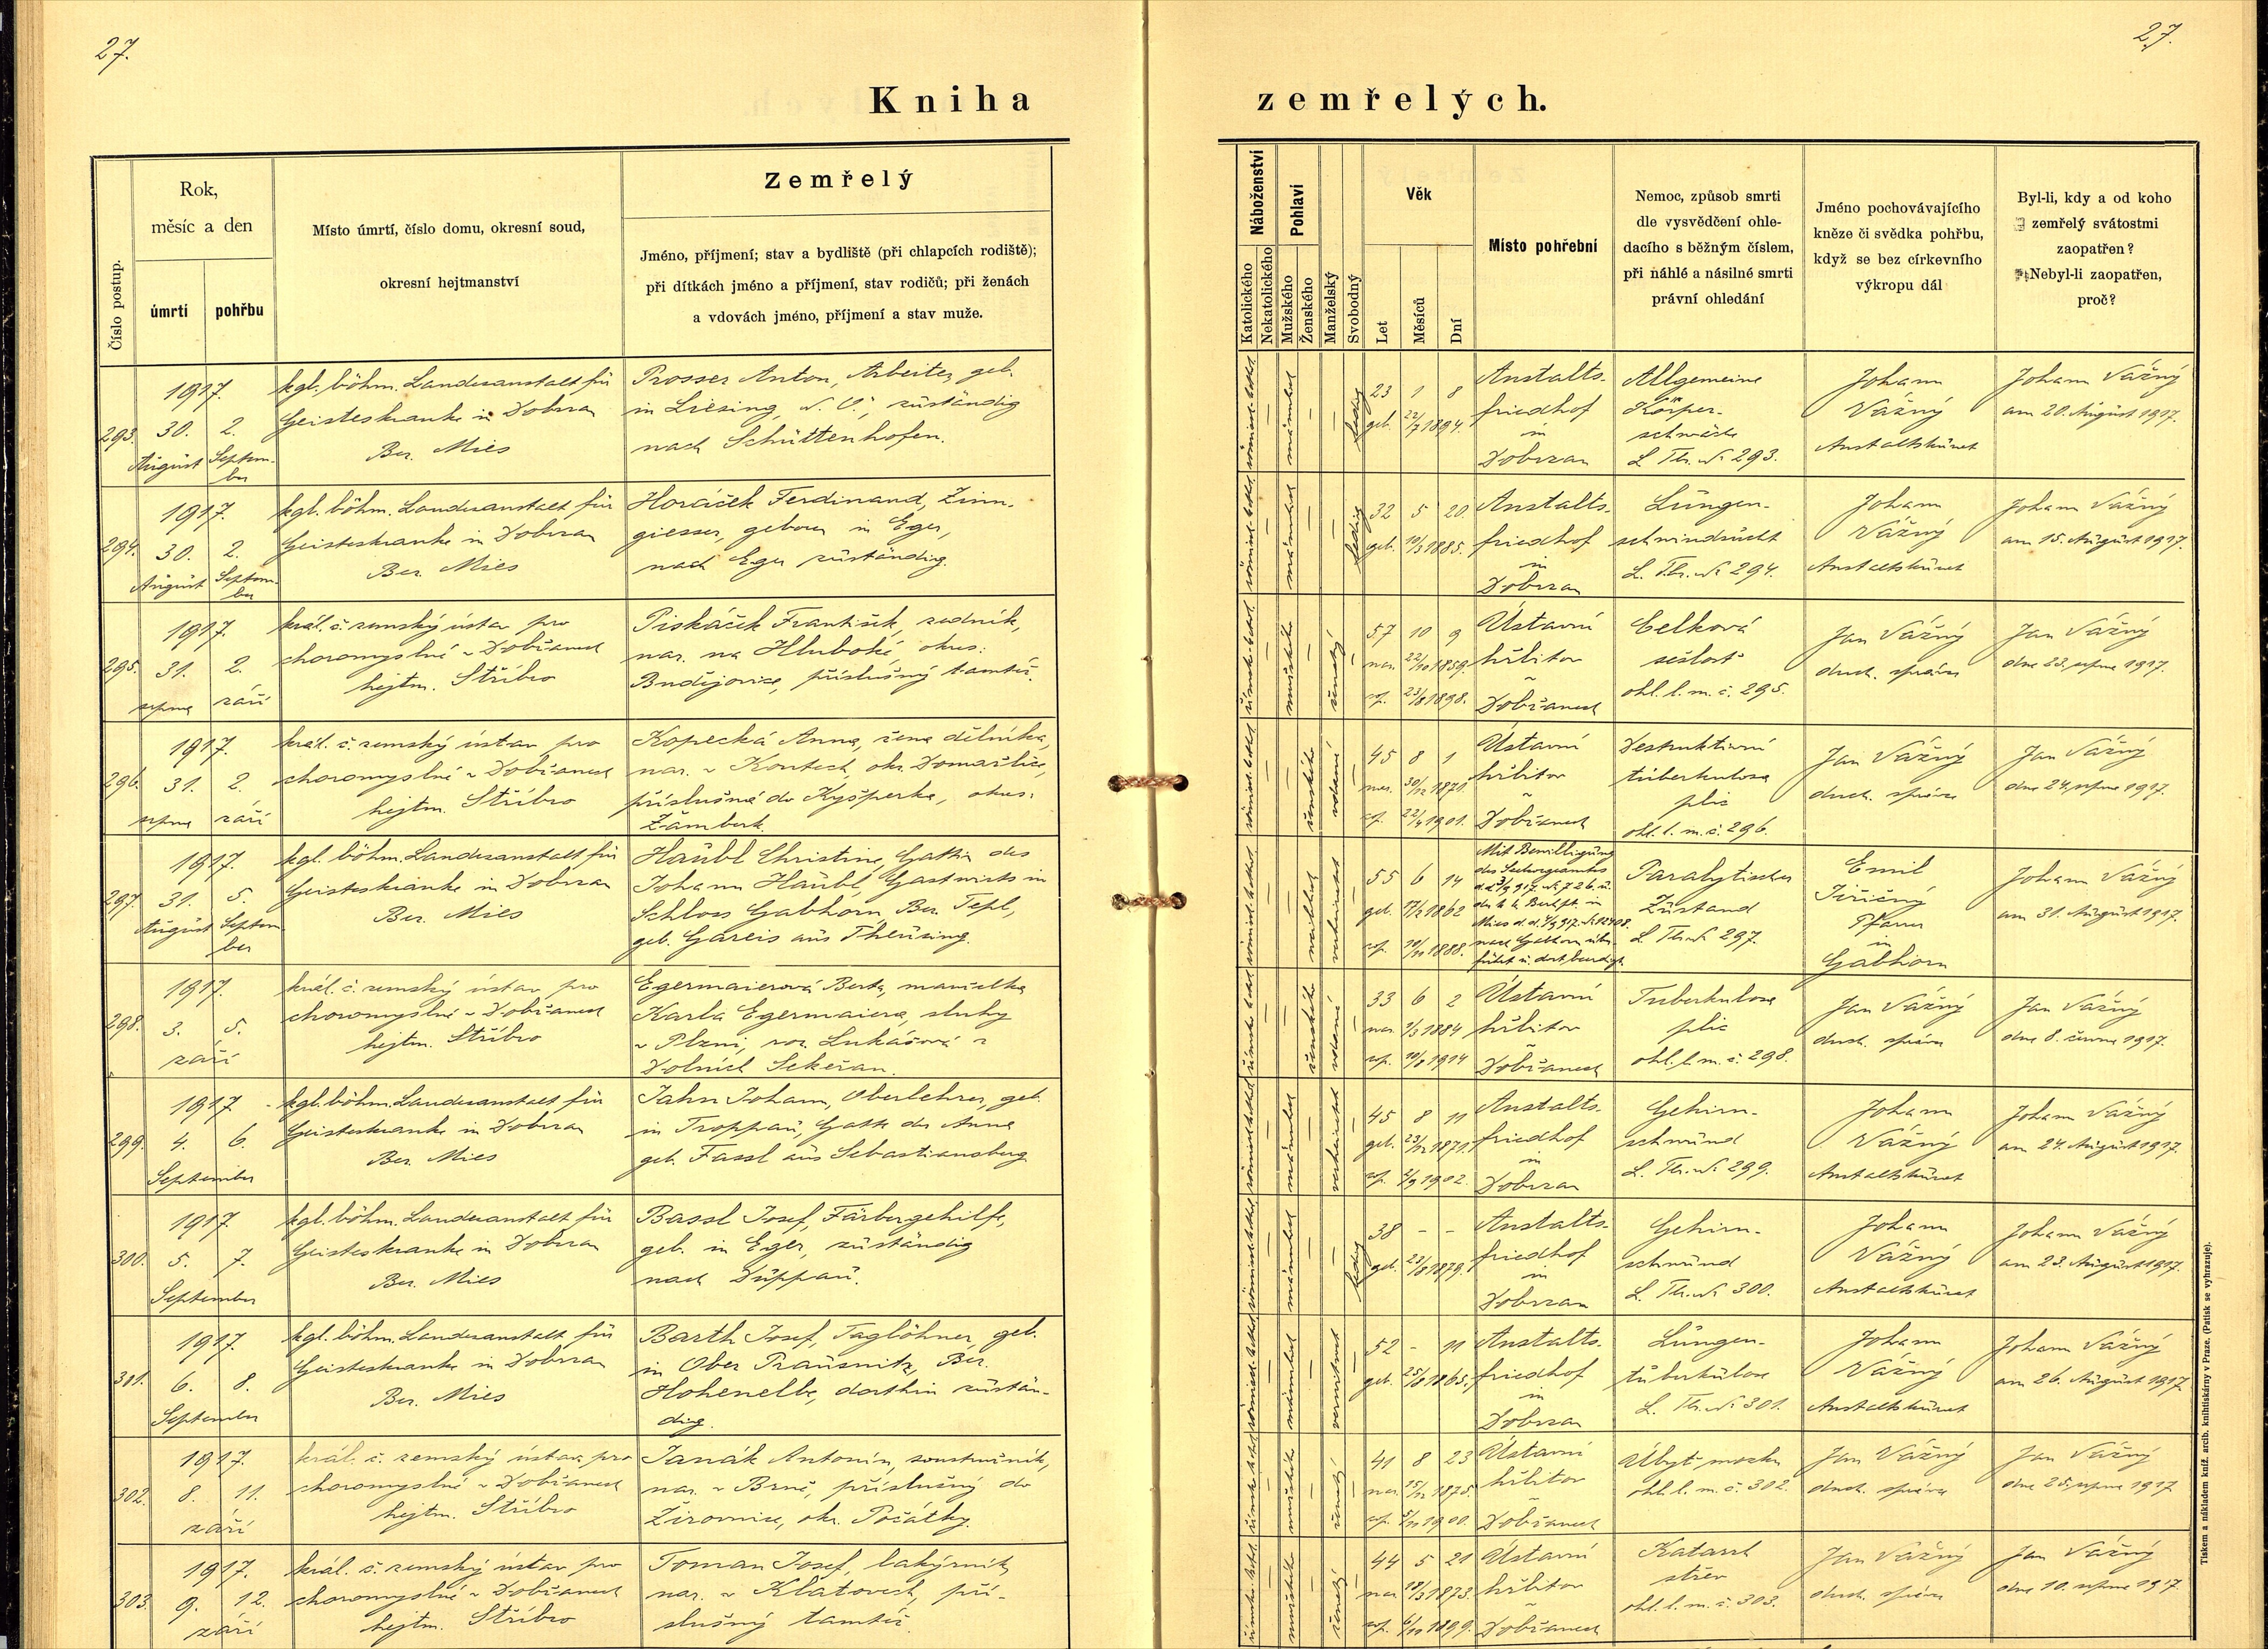 27.
27.
Kniha zemřelých.
Číslo postup.
Rok,
měsíc a den
úmrtí
pohřbu
Místo úmrtí, číslo domu, okresní soud,
okresní hejtmanství
Zemřelý
Jméno, příjmení; stav a bydliště (při chlapcích rodiště);
při dítkách jméno a příjmení, stav rodičů; při ženách
a vdovách jméno, příjmení a stav muže.
Náboženství
Katolického
Nekatolického
Pohlaví
Mužského
Ženského
Manželský
Svobodný
Věk
Let
Měsíců
Dní
Místo pohřební
Nemoc, způsob smrti
dle vysvědčení ohle-
dacího s běžným číslem,
při náhlé a násilné smrti
právní ohledání
Jméno pochovávajícího
kněze či svědka pohřbu,
když se bez církevního
výkropu dál
Byl-li, kdy a od koho
zemřelý svátostmi
zaopatřen?
Nebyl-li zaopatřen,
proč?
293.
1917.
30. 2.
August Septem-
ber
kgl. böhm. Landesanstalt für
Geisteskranke in Dobrzan
Bez. Mies
Prosser Anton, Arbeiter, geb.
in Liesing, N. Ö., zuständig
nach Schüttenhofen.
männlich
ledig
23 1 8
geb. 22/7 1894.
Anstalts-
friedhof
in
Dobrzan
Allgemeine
Körper-
schwäche
L. Th. No 293.
Johann
Vážný
Anstaltskurat
Johann Vážný
am 20. August 1917.
294.
1917.
30. 2.
August Septem-
ber
kgl. böhm. Landesanstalt für
Geisteskranke in Dobrzan
Bez. Mies
Horáček Ferdinand, Zinn-
giesser, geboren in Eger,
nach Eger zuständig.
männlich
ledig
32 5 20.
geb. 10/3 1885.
Anstalts-
friedhof
in
Dobrzan
Lungen-
schwindsucht
L. Th. No 294.
Johann
Vážný
Anstaltskurat
Johann Vážný
am 15. August 1917.
295.
1917.
31. 2.
srpna září
král. č. zemský ústav pro
choromyslné v Dobřanech
hejtm. Stříbro
Piskáček František, zedník,
nar. na Hluboké, okres:
Budějovice, příslušný tamtéž.
mužského
ženatý
57 10 9
nar. 22/10 1859.
cop. 23/8 1898.
Ústavní
hřbitov
v
Dobřanech
Celková
sešlost
ohl. l. m. č. 295.
Jan Vážný
duch. správce
Jan Vážný
dne 23. srpna 1917.
296.
1917.
31. 2.
srpna září
král. č. zemský ústav pro
choromyslné v Dobřanech
hejtm. Stříbro
Kopecká Anna, žena dělníka,
nar. v Koutech, okr. Domažlice,
příslušná do Kyšperka, okres:
Žamberk.
ženského
vdaná
45 8 1
nar. 30/12 1871.
cop. 22/4 1901.
Ústavní
hřbitov
v
Dobřanech
Destruktivní
tuberkulosa
plic
ohl. l. m. č. 296.
Jan Vážný
duch. správce
Jan Vážný
dne 24. srpna 1917.
297.
1917.
31. 5.
August Septem
ber
kgl. böhm. Landesanstalt für
Geisteskranke in Dobrzan
Bez. Mies
Haubl Christine, Gattin des
Johann Haubl, Gastwirts in
Schloss Gabhorn, Bez. Tepl,
geb. Gareis aus Theusing.
weiblich
verheiratet
55 6 14
geb. 17/2 1862
cop. 10/11 1888.
Mit Bewilligung
des Seelsorgeamtes
d. d. 3/9 917. No 726. u.
der k. k. Bezhpt. in
Mies d. d. 1/9 917. No 12408.
nach Gabhorn über-
führt u. dort beerdigt.
Paralytischer
Zustand
L. Th. No 297.
Emil
Jiřičný
Pfarrer
in
Gabhorn
Johann Vážný
am 31. August 1917.
298.
1917.
3. 5.
září
král. č. zemský ústav pro
choromyslné v Dobřanech
hejtm. Stříbro
Egermaierová Berta, manželka
Karla Egermaiera, sluhy
v Plzni, roz. Lukášová v
Dolních Sekeřan.
ženského
vdaná
33 6 2
nar. 1/3 1884
Ústavní
hřbitov
v
Dobřanech
Tuberkulosa
plic
ohl. l. m. č. 298.
Jan Vážný
duch. správce
Jan Vážný
dne 8. června 1917.
299.
1917.
4. 6.
September
kgl. böhm. Landesanstalt für
Geisteskranke in Dobrzan
Bez. Mies
Jahn Johann, Oberlehrer, geb.
in Troppau, Gatte der Anna
geb. Fassl aus Sebastiansberg
männlich
verheiratet
45 8 11
geb. 23/12 1871.
cop. 2/9 1902.
Anstalts-
friedhof
in
Dobrzan
Gehirn-
schwund
L. Th. No 299.
Johann
Vážný
Anstaltskurat
Johann Vážný
am 24. August 1917.
300.
1917.
5. 7.
September
kgl. böhm. Landesanstalt für
Geisteskranke in Dobrzan
Bez. Mies
Bassl Josef, Färbergehilfe,
geb. in Eger, zuständig
nach Duppau.
männlich
ledig
38 - -
geb. 23/8 1879.
Anstalts-
friedhof
in
Dobrzan
Gehirn-
schwund
L. Th. No 300.
Johann
Vážný
Anstaltskurat
Johann Vážný
am 23. August 1917.
301.
1917.
6. 8.
September
kgl. böhm. Landesanstalt für
Geisteskranke in Dobrzan
Bez. Mies
Barth Josef, Taglöhner, geb.
in Ober Prausnitz, Bez.
Hohenelbe, dorthin zustän-
dig.
männlich
verwitwet
52 - 11
geb. 25/8 1865.
Anstalts-
friedhof
in
Dobrzan
Lungen-
tuberkulose
L. Th. No 301.
Johann
Vážný
Anstaltskurat
Johann Vážný
am 26. August 1917.
302.
1917.
8. 11.
září
král. č. zemský ústav pro
choromyslné v Dobřanech
hejtm. Stříbro
Janák Antonín, soustružník,
nar. v Brně, příslušný do
Žirovnice, okr. Počátky.
mužského
ženatý
41 8 23
nar. 15/12 1875.
cop. 5/11 1900.
Ústavní
hřbitov
v
Dobřanech
Úbyť mozku
ohl. l. m. č. 302.
Jan Vážný
duch. správce
Jan Vážný
dne 25. srpna 1917.
303.
1917.
9. 12.
září
král. č. zemský ústav pro
choromyslné v Dobřanech
hejtm. Stříbro
Toman Josef, lakýrník,
nar. v Klatovech, pří-
slušný tamtéž.
mužského
ženatý
44 5 21
nar. 18/3 1873.
cop. 6/11 1899.
Ústavní
hřbitov
v
Dobřanech
Katarrh
střev
ohl. l. m. č. 303.
Jan Vážný
duch. správce
Jan Vážný
dne 10. srpna 1917.
Tiskem a nákladem kníž. arcib. knihtiskárny v Praze. (Patisk se vyhrazuje).